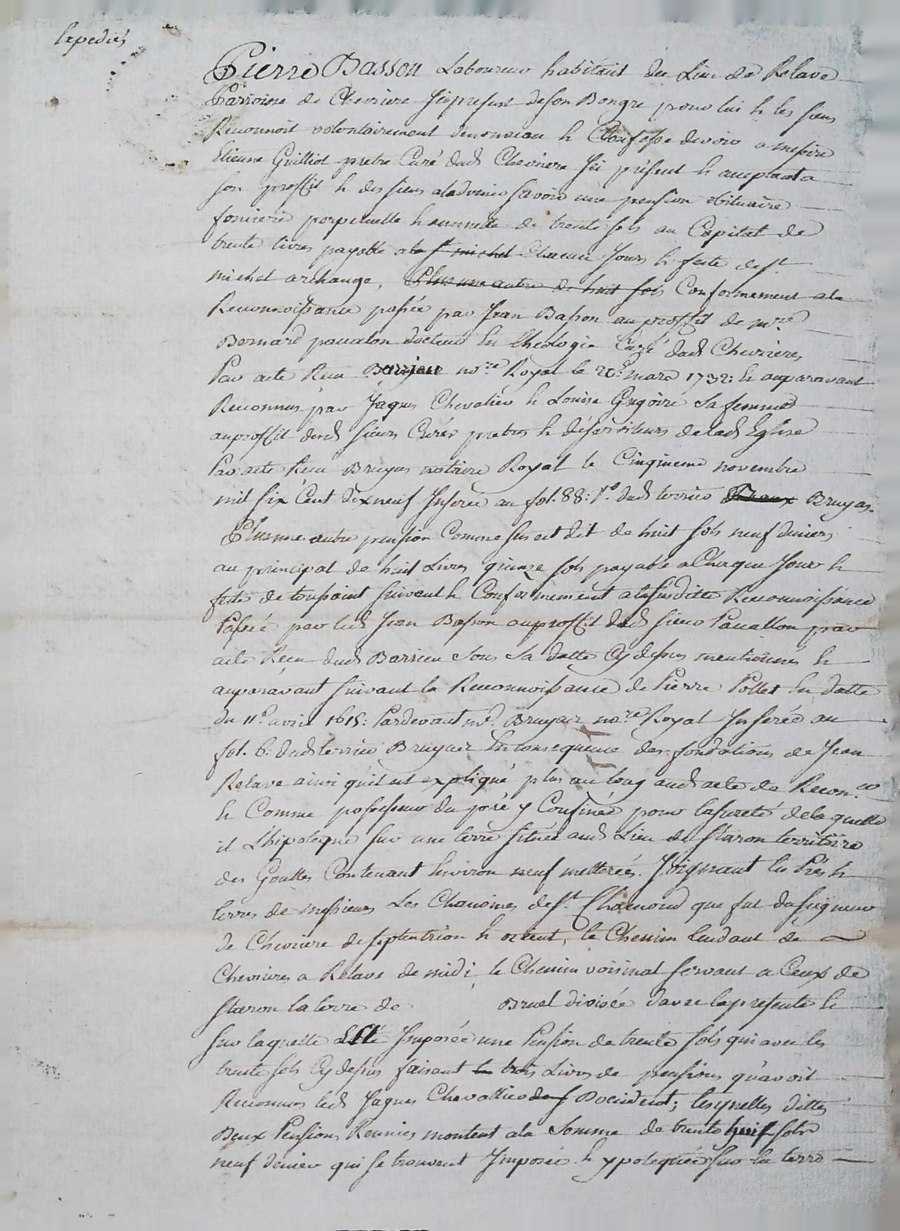 expediés
Pierre Basson Laboureur habitant du Lieu de Relave
Parroisse de Chevriere Jmpresent deson Bongre pour lui & les siens
Reconnoit volontairement denouveau & Confesse devoir a messire
Etienne Guilliot pretre Curé dud Chevriere Jci présent & acceptant a
son proffit & des siens aladvenir savoir une pension obituaire
fonciere perpetuelle & annuelle de trente sols au Capital de
trente livres payable ala st michel Chacun Jour & feste de st
michel archange, Plus une autre de huit sols Conformement ala
Reconnoissance passée par Jean Basson auproffit de mre
Bernard pauallon docteur En theologie Curé dud Chevrieres
Par acte Recu nore Royal le 20e mars 1732: & auparavant
Reconnus par Jaques Chevalier & Louise Grégoire sa femme
auproffit desd sieurs Curés pretres & déserviteurs delad Eglise
Par acte Recu Bruyas notaire Royal le Cinquieme novembre
mil six Cent dixneuf Jnserée au fol. 88: vo dud terrier Bruyas.
Plusune autre pension Comme sus est dit de huit sols neuf deniers
au principal de huit Livres quinze sols payable aChaque Jour &
feste de toussaint suivant & Conformement alasusditte Reconnoissance
Passée par led Jean Basson auproffit dud sieur Pauallon par
acte Reçu dud Barrieu sous sa datte Cy dessus mentionnée &
auparavant suivant la Reconnoissance de Pierre Pollet En datte
du 11e avril 1615: Pardevant me Bruyas nore Royal Jnserée au
fol. 6. dud terrier Bruyas En consequence des fondations de Jean
Relave ainsi quil est expliqué plus au long aud acte de Reconce
& Comme possesseur du Confiné pour lasureté dela quelle
il Lhipoteque sur une terre située aud Lieu de Staron territoire
des Gouttes Contenant Environ neuf metterées. Joignant les Prés &
terres de messieurs Les Chanoines de st Chamond que fut du seigneur
de Chevriere de septentrion & orient, le Chemin tendant de
Chevrieres a Relave de midi, le Chemin voisinal servant a Ceux de
Staron la terre de Bruel divisée davec la presente &
sur laquelle Est Jmposée une Pension de trente sols qui avec les
trente sols Cy dessus faisant les trois Livres de pensions quavoit
Reconnues led Jaques Chevallier de f Doccident; lesquelles dittes
Deux Pensions Reunies montent ala Somme de trente huit sols
neuf denier qui se trouvent Jmposée & ypotequées sur la terre